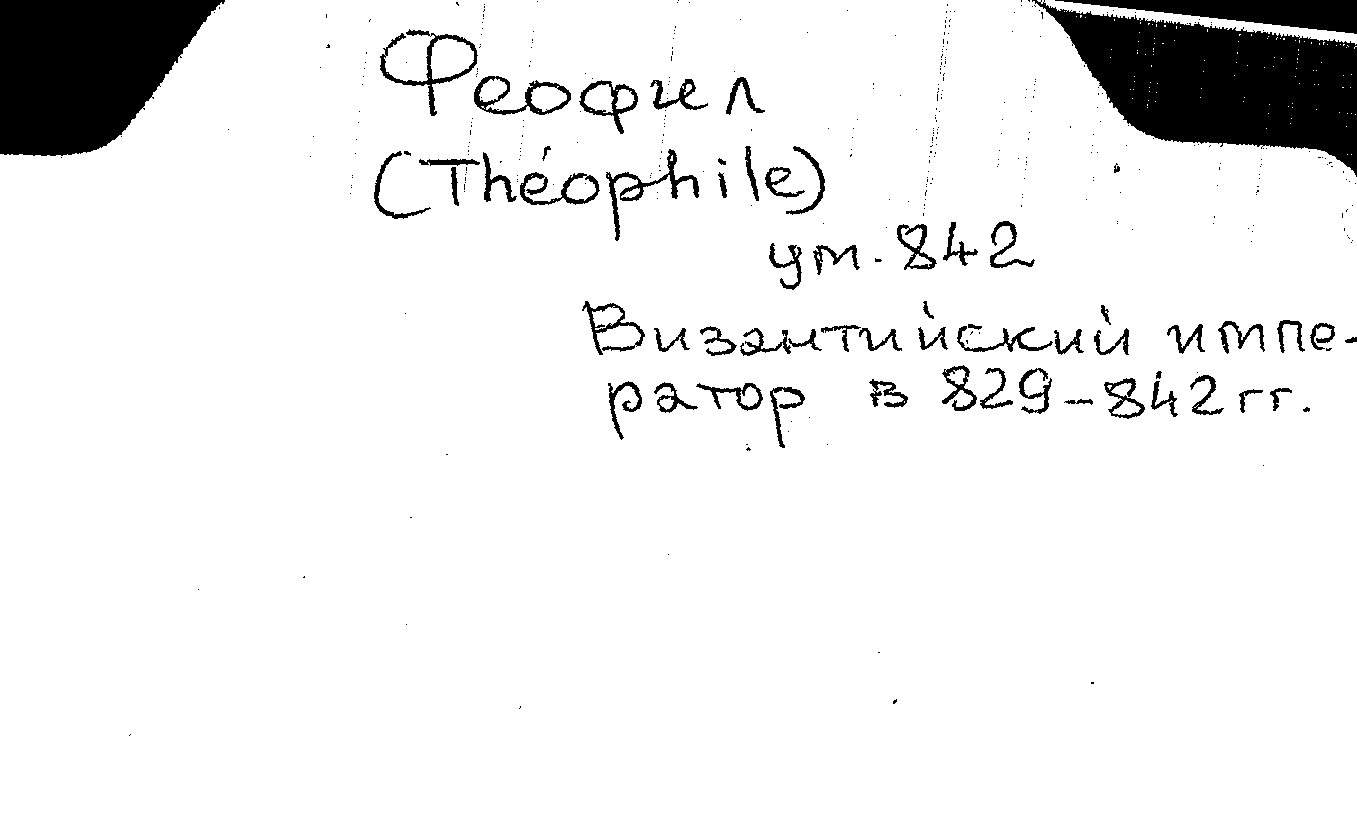 Феофил
(Théophile)
ум. 842
Византийский импе-
ратор в 829-842 гг.